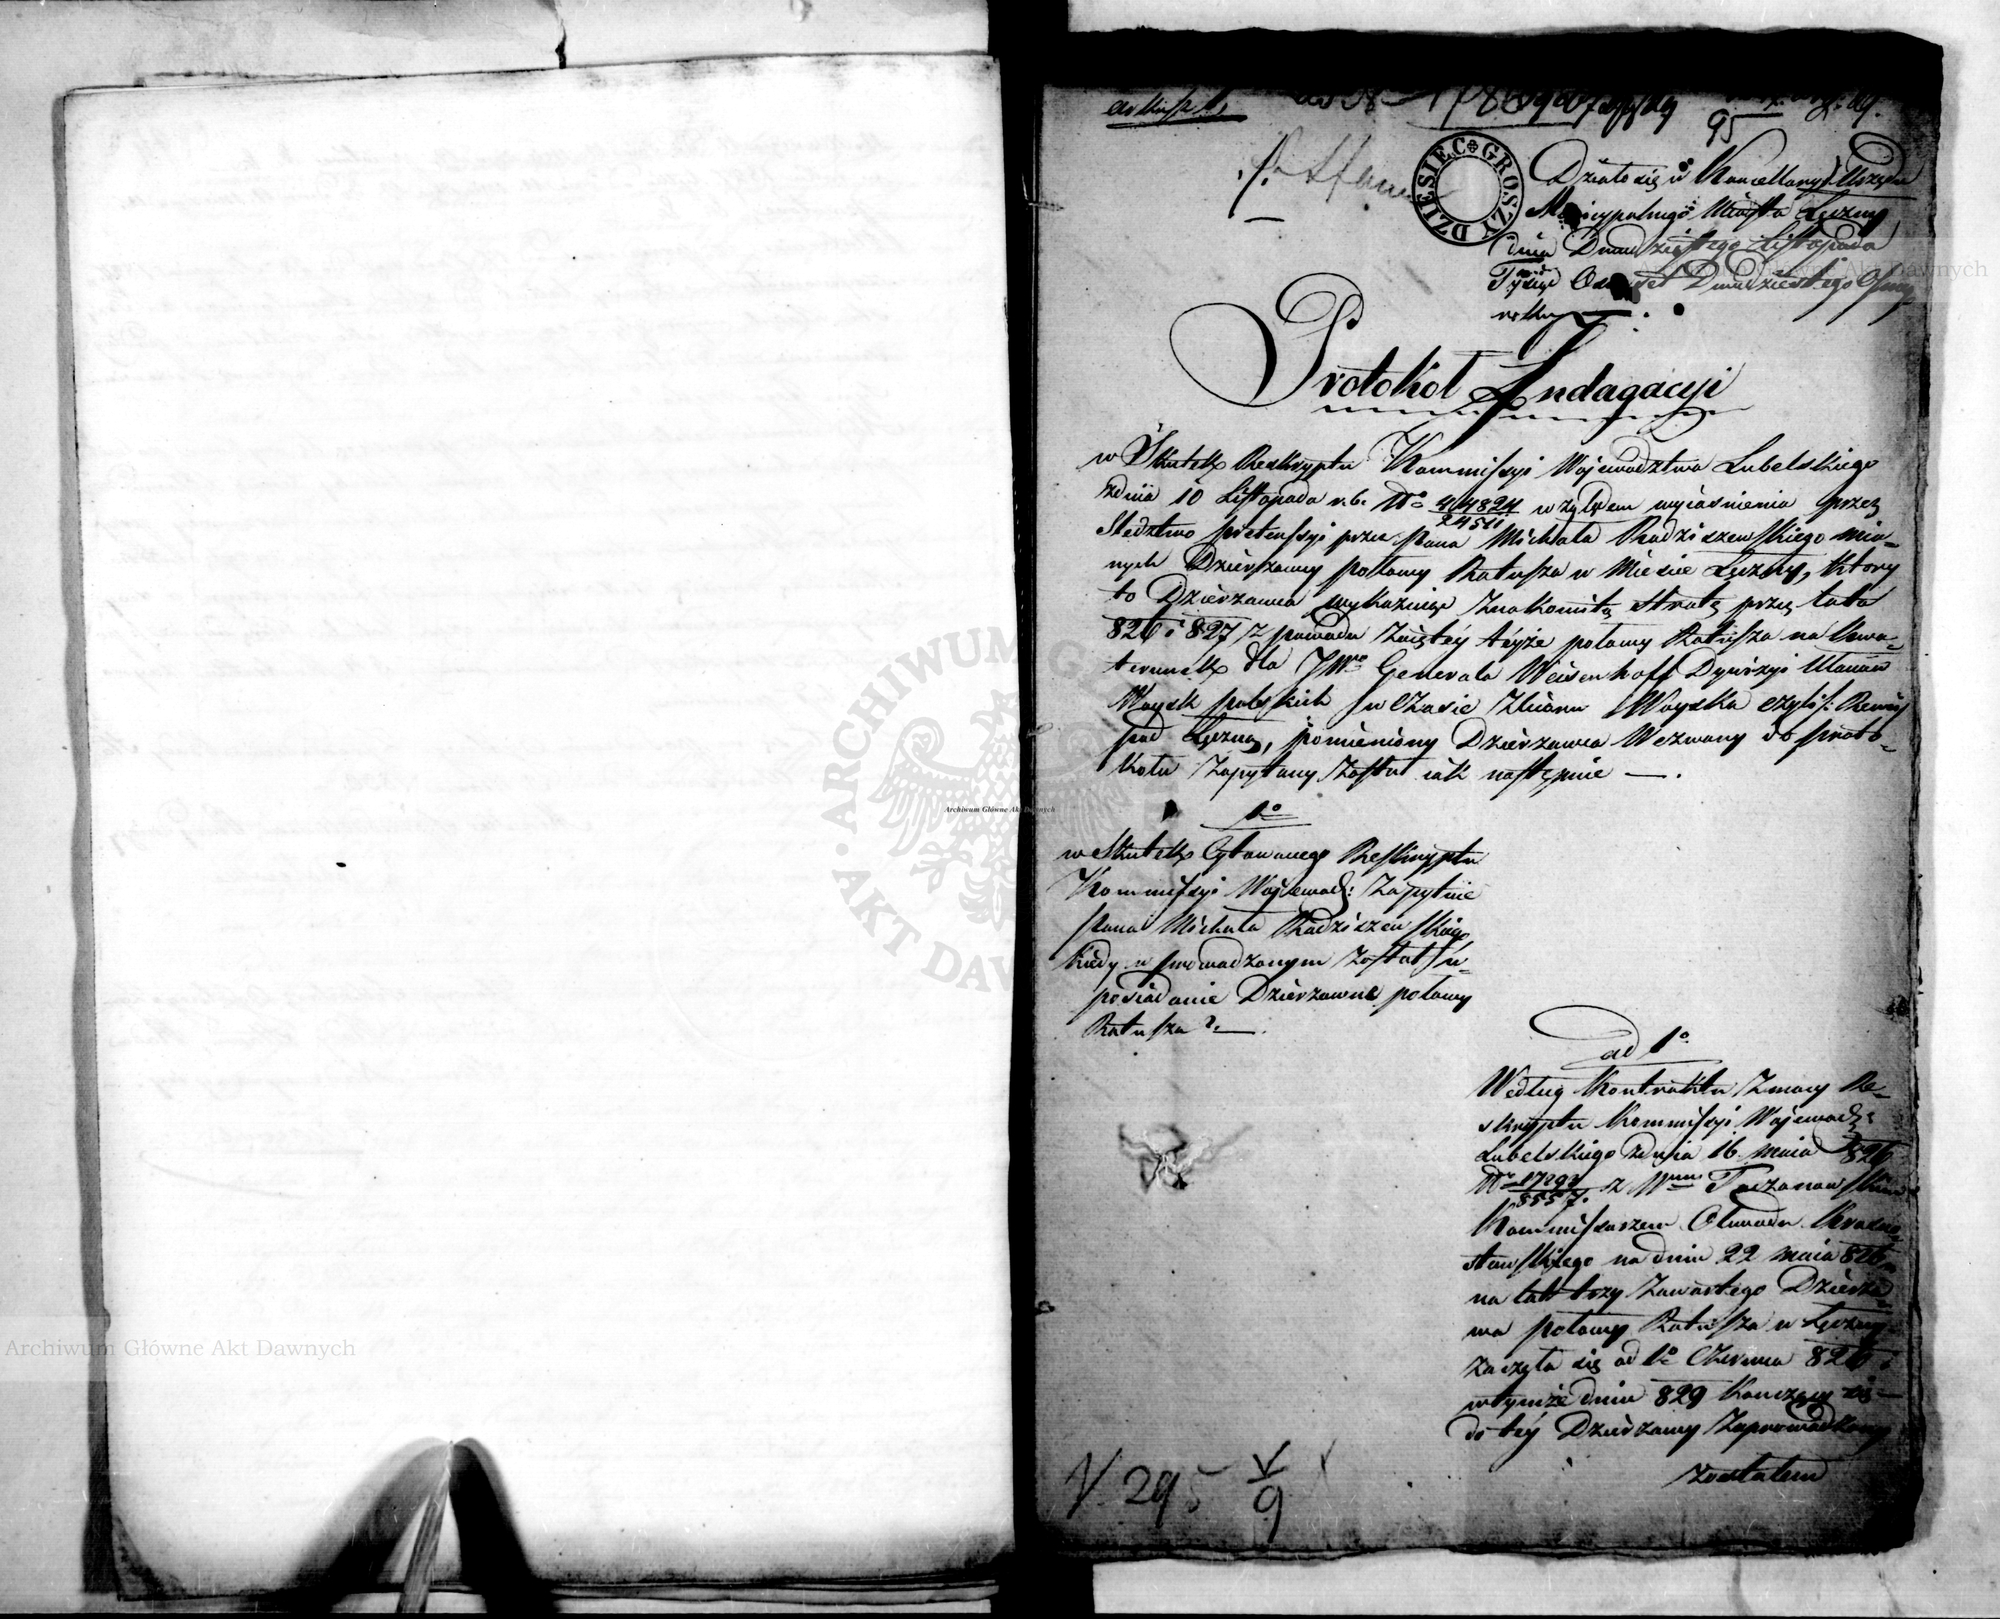 95
DZIESIĘC GROSZY
Działo się w Kancellaryi Urzędu
Municypalnego Miasta Łęczny
dnia Dwudziestego Listopada
Tysiąc Osiemset Dwudziestego Osmego
roku
Protokół Indagacyi
w Skutek Reskryptu Kommissyi Wojewodztwa Lubelskiego
z dnia 10 Listopada r. b. No 44824/24511 względem wyiaśnienia przez
Sledztwo pretensyi przez Pana Michała Radziszewskiego mia-
nych Dzierzawy połowy Ratusza w Miescie Łęczny, ktory
to Dzierzawca wykazuiąc Znakomitą stratę przez lata
826 i 827 z powodu Zaiętey teyże połowy Ratusza na kwa-
terunek dla JWo Generała Weisenhoff Dywizyi Ułanów
Woysk polskich w Czasie Zbioru Woyska czyli Rewii
pod Łęczną, pomieniony Dzierzawca Wezwany do proto-
kołu Zapytany Został iak następuie —.
1o
w Skutek Cytowanego Reskryptu
Kommissyi Wojewodz: Zapytuie
Pana Michała Radziszewskiego
kiedy wprowadzonym Został w
posiadanie Dzierzawne połowy
Ratusza? —.
ad 1o
Według Kontraktu Zmocy Re-
skryptu Kommissyi Wojewodz:
Lubelskiego z dnia 16 maia 826
No 17293/8557. z Wnym Taczanowskim
Kommissarzem Obwodu Krasno-
stawskiego na dniu 22 maia 826
na lat trzy Zawartego Dzierża-
wa połowy Ratusza w Łęczny
Zaczęła się od 1o Czerwca 826 i
w tymże dniu 829 kończący się
do tey Dzierzawy Zaprowadzony
zostałem
V. 295 V/9
Archiwum Główne Akt Dawnych
Archiwum Główne Akt Dawnych
Archiwum Główne Akt Dawnych